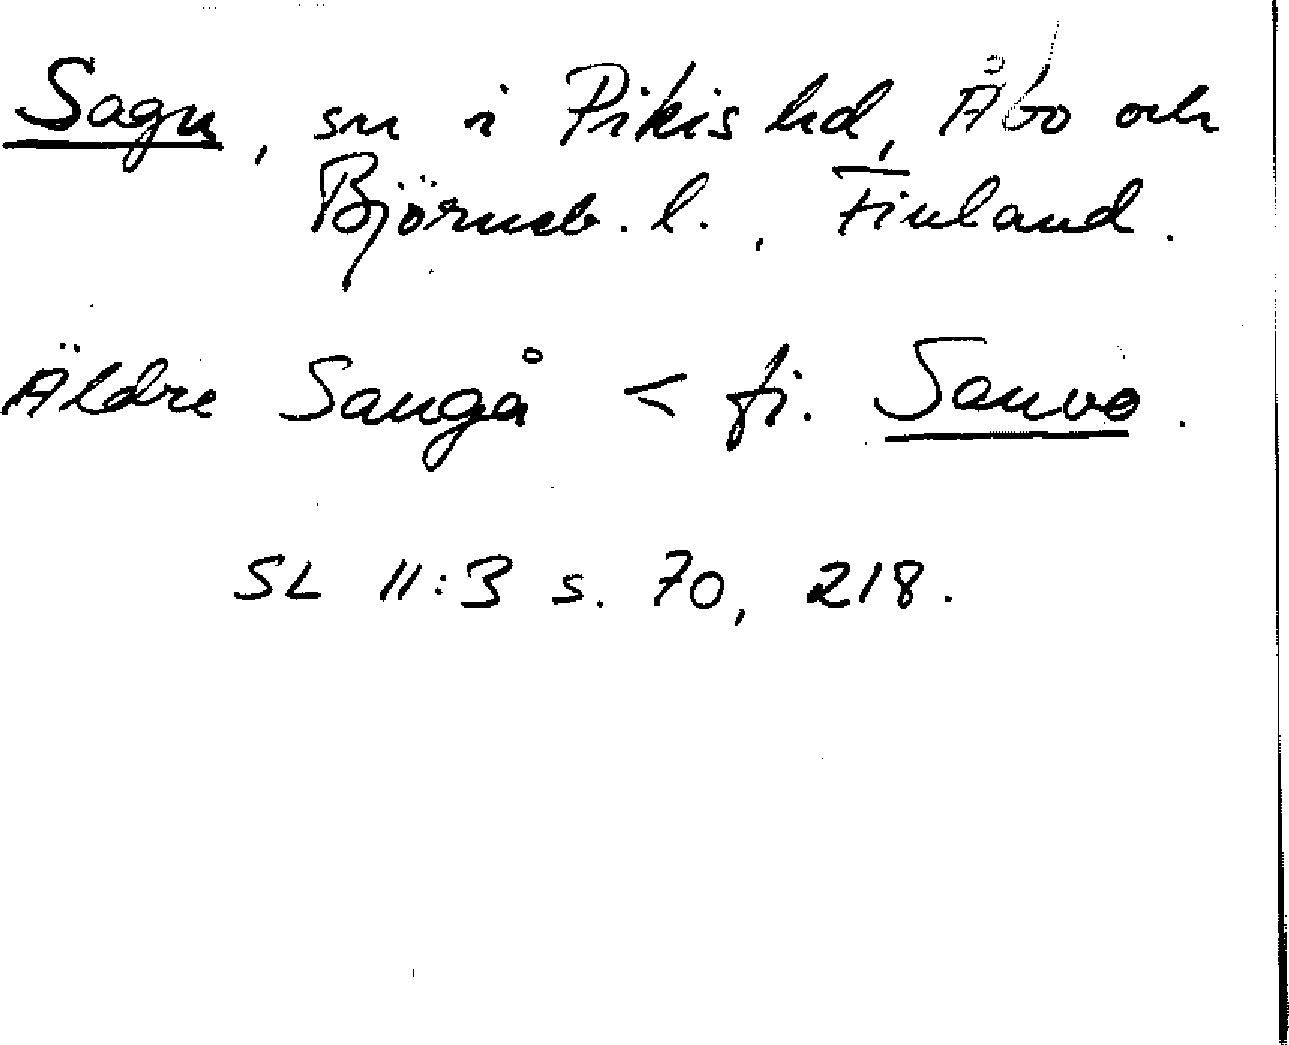 Sagu, sn i Pikis hd, Åbo och
Björneb. l., Finland.
Äldre Saugå < fi. Sauvo.
SL 11:3 s. 70, 218.